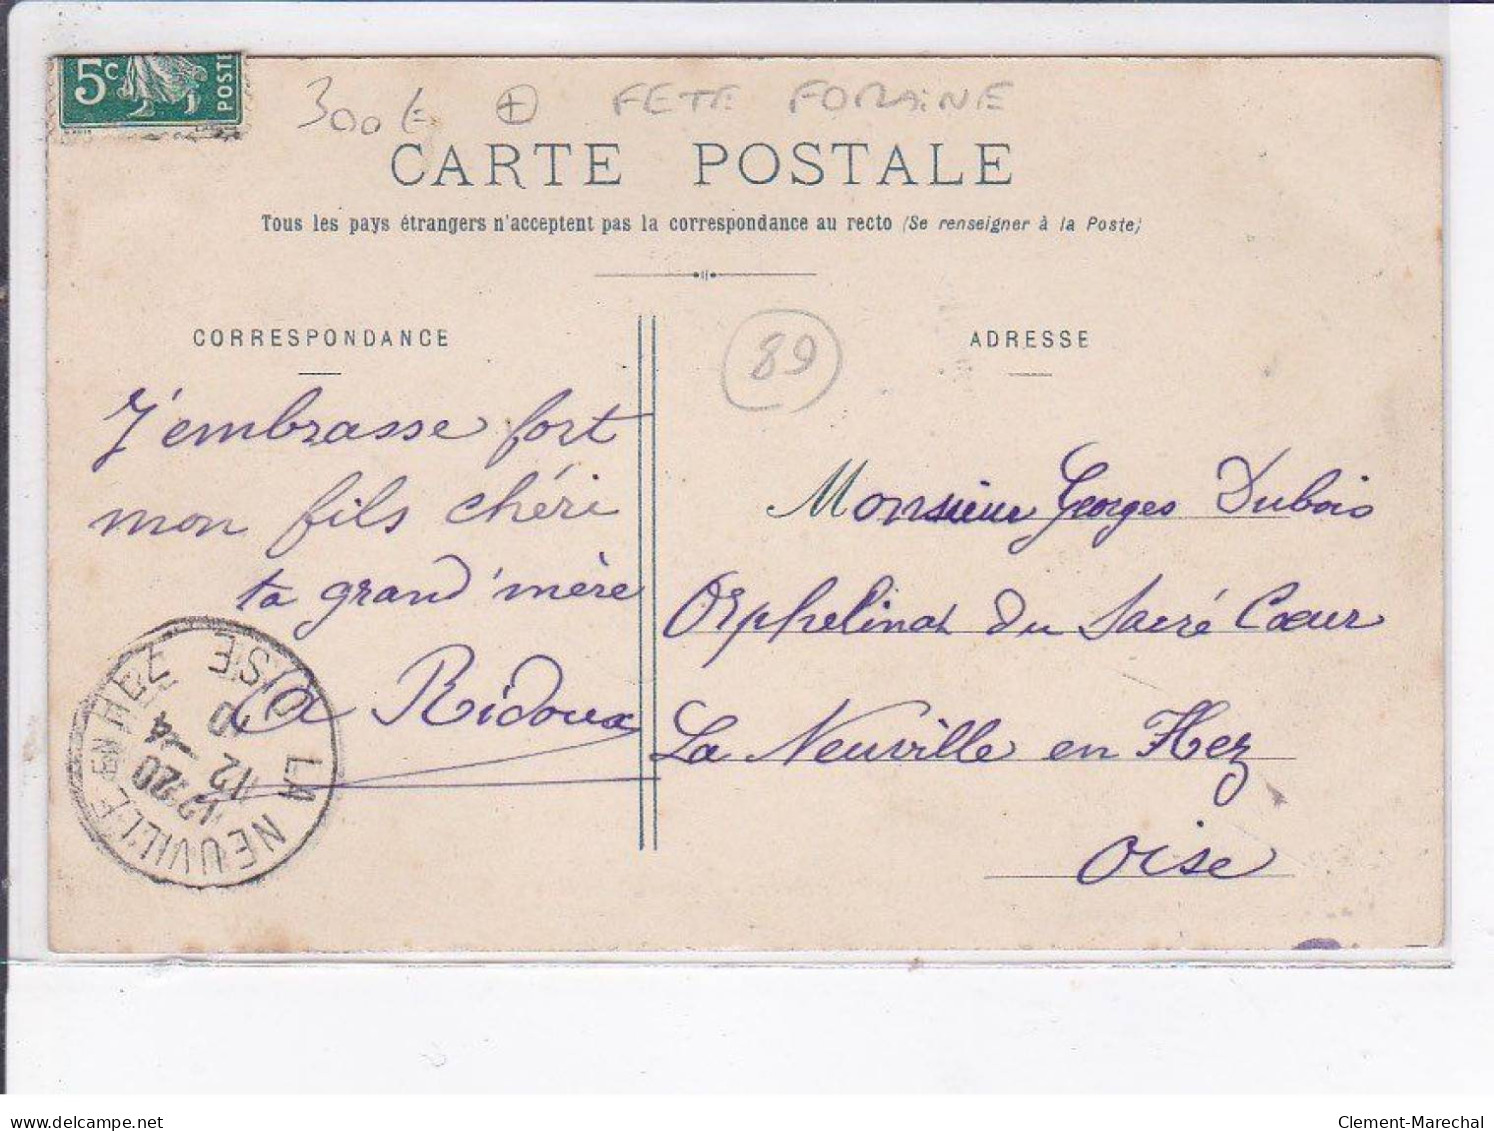 5c
POSTE
300 €
FETE FORAINE
CARTE POSTALE
Tous les pays étrangers n'acceptent pas la correspondance au recto (Se renseigner à la Poste)
CORRESPONDANCE
89
ADRESSE
J'embrasse fort
mon fils chéri
ta grand'mère
A Ridoux
Monsieur Georges Dubois
Orphelinat du Sacré Cœur
La Neuville en Hez
Oise
LA NEUVILLE EN HEZ
OISE
delcampe.net
Clement-Marechal